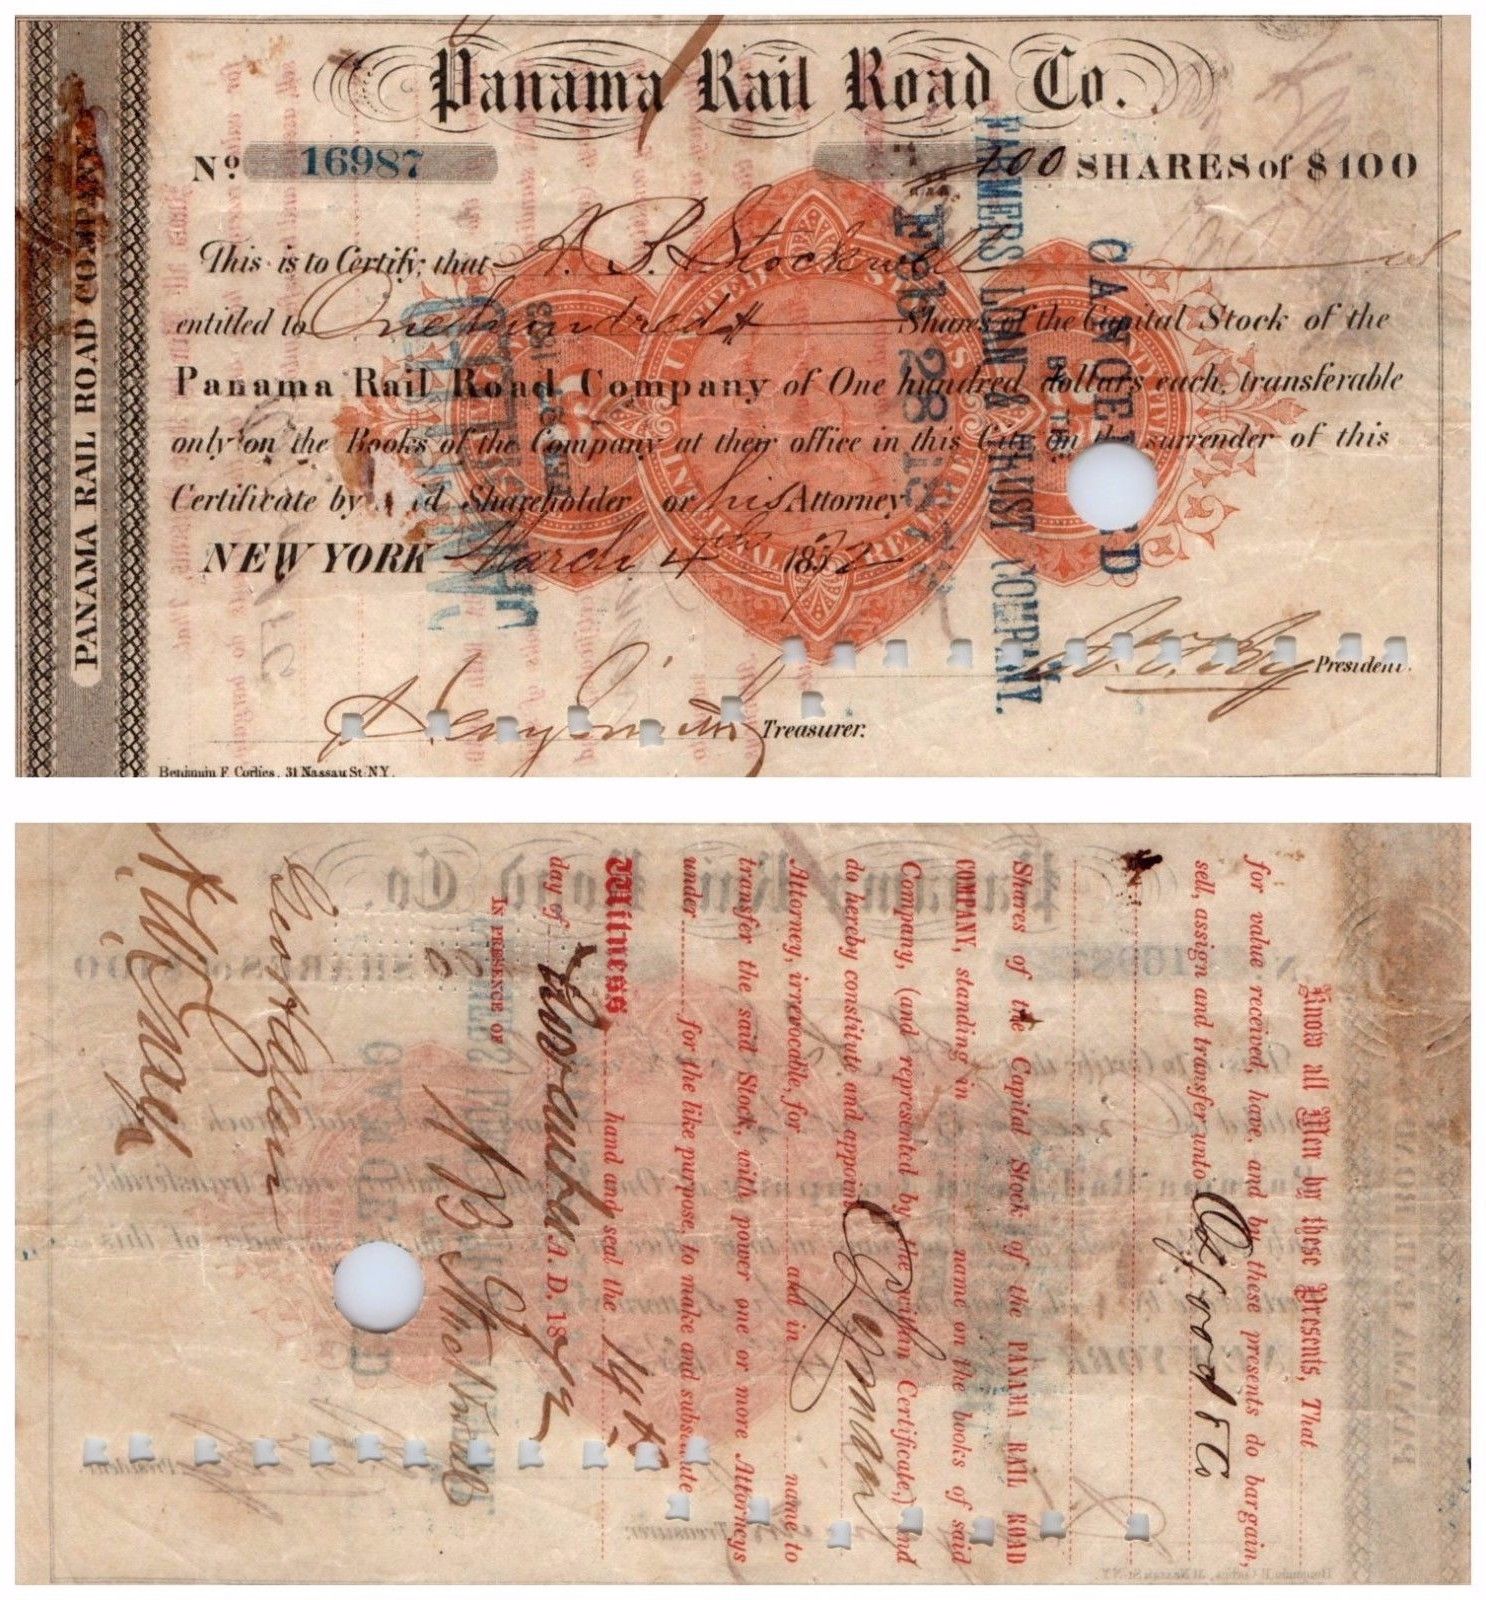 Panama Rail Road Co.
PANAMA RAIL ROAD COMPANY
No. 16987
100 SHARES of $100
This is to Certify, that A. B. Stockwell is
entitled to One hundred Shares of the Capital Stock of the
Panama Rail Road Company of One hundred dollars each, transferable
only on the Books of the Company at their office in this City on the surrender of this
Certificate by Shareholder or his Attorney
NEW YORK March 4th 1872
President.
Henry Smith Treasurer.
Benjamin F. Corlies, 31 Nassau St. N.Y.
UNITED STATES
INTERNAL REVENUE
CANCELLED
CANCELLED
FARMERS LOAN & TRUST COMPANY.
CANCELLED
BY THE
FEB 28 187
Know all Men by these Presents, That
for value received, have, and by these presents do bargain,
sell, assign and transfer unto Osgood & Co
Shares of the Capital Stock of the PANAMA RAIL ROAD
COMPANY, standing in name on the books of said
Company, (and represented by the within Certificate,) and
do hereby constitute and appoint
Attorney, irrevocable, for and in name to
transfer the said Stock, with power one or more Attorneys
under for the like purpose, to make and substitute
Witness hand and seal the 14th
day of November A. D. 1872
IN PRESENCE OF
A B Stockwell